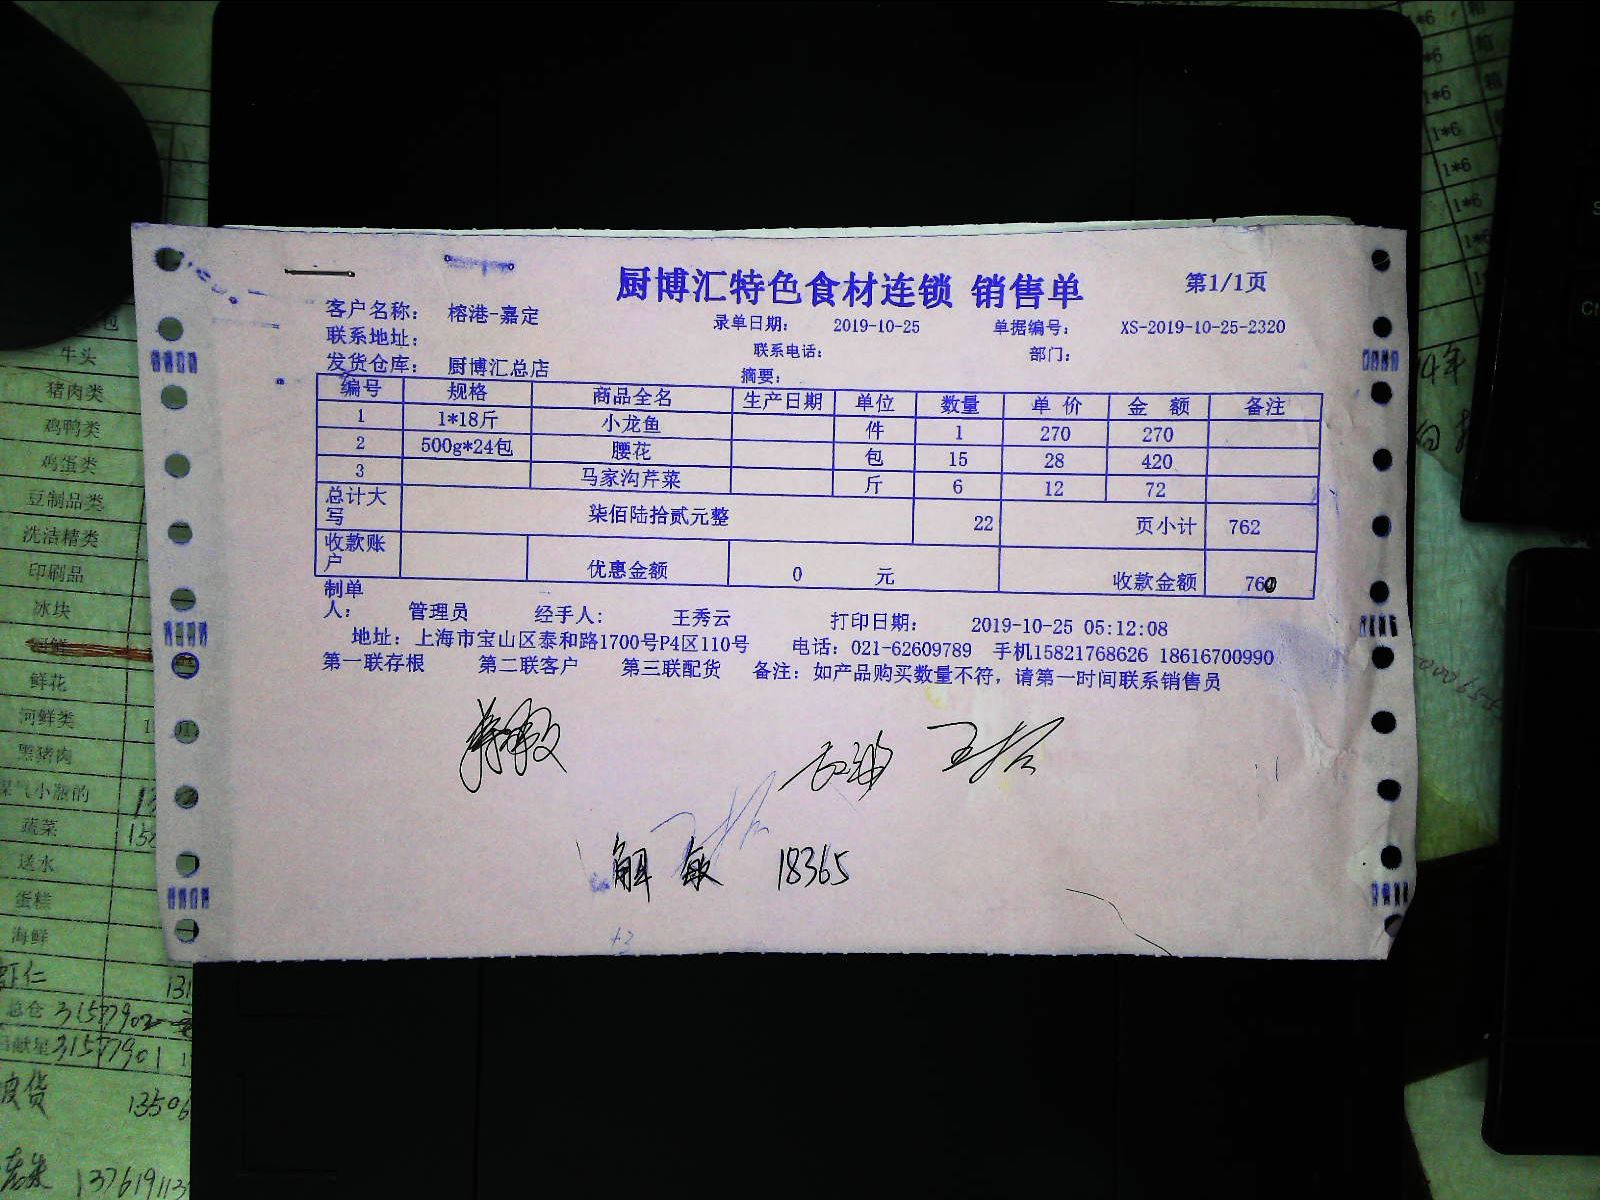 厨博汇特色食材连锁 销售单 第1/1页
客户名称： 榕港-嘉定 录单日期： 2019-10-25 单据编号： XS-2019-10-25-2320
联系地址： 联系电话： 部门：
发货仓库： 厨博汇总店 摘要：
编号 规格 商品全名 生产日期 单位 数量 单 价 金 额 备注
1 1*18斤 小龙鱼 件 1 270 270
2 500g*24包 腰花 包 15 28 420
3 马家沟芹菜 斤 6 12 72
总计大写 柒佰陆拾贰元整 22 页小计 762
收款账户 优惠金额 0 元 收款金额 760
制单人： 管理员 经手人： 王秀云 打印日期： 2019-10-25 05:12:08
地址：上海市宝山区泰和路1700号P4区110号 电话：021-62609789 手机15821768626 18616700990
第一联存根 第二联客户 第三联配货 备注：如产品购买数量不符，请第一时间联系销售员
解 敏 18365
包
牛头
猪肉类
鸡鸭类
鸡蛋类
豆制品类
洗洁精类
印刷品
冰块
鲜花
河鲜类
黑猪肉
煤气小瓶的
蔬菜
送水
蛋糕
海鲜
虾仁 131
总仓 31577902
31577901
皮货 13506
137619113
1*6
1*6
1*6
1*6
1*6
箱